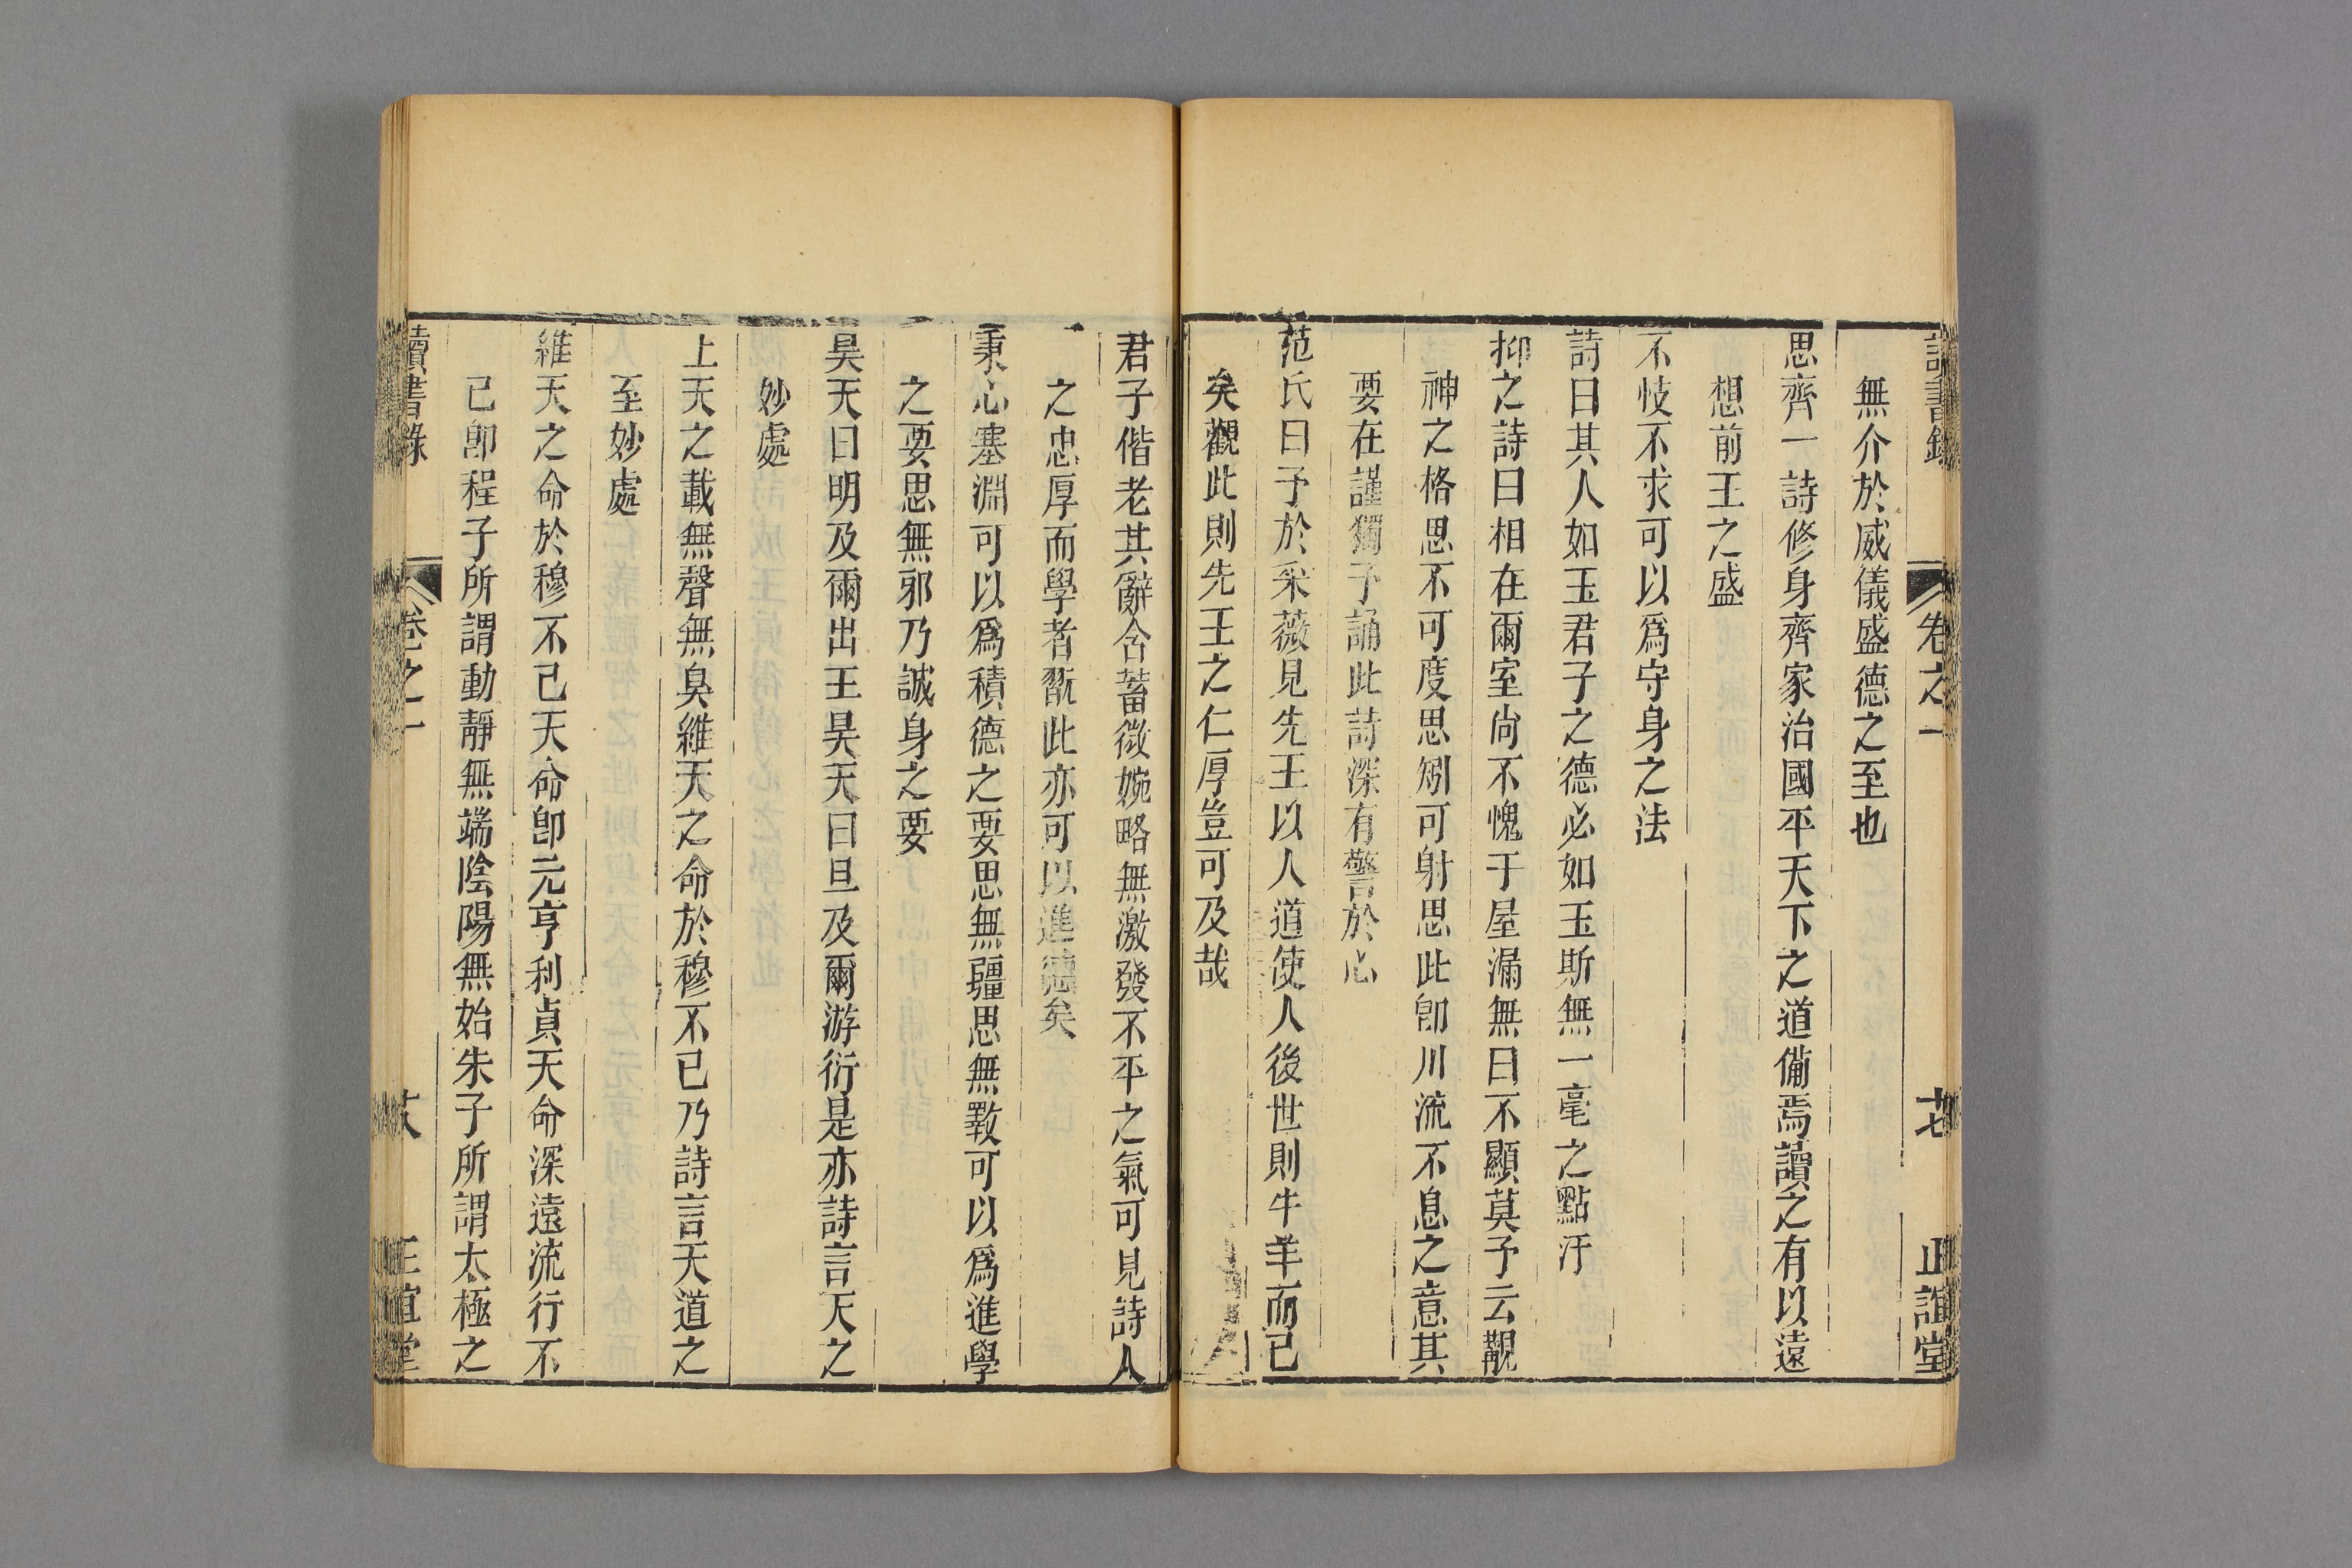 讀書錄 卷之一 廿七 正誼堂
無介於威儀盛德之至也
思齊一詩修身齊家治國平天下之道備焉讀之有以遠
想前王之盛
不忮不求可以爲守身之法
詩曰其人如玉君子之德必如玉斯無一毫之點汙
抑之詩曰相在爾室尚不愧于屋漏無曰不顯莫予云覯
神之格思不可度思矧可射思此卽川流不息之意其
要在謹獨予誦此詩深有警於心
范氏曰予於采薇見先王以人道使人後世則牛羊而已
矣觀此則先王之仁厚豈可及哉
君子偕老其辭含蓄微婉略無激發不平之氣可見詩人
之忠厚而學者翫此亦可以進德矣
秉心塞淵可以爲積德之要思無疆思無斁可以爲進學
之要思無邪乃誠身之要
昊天曰明及爾出王昊天曰旦及爾游衍是亦詩言天之
妙處
上天之載無聲無臭維天之命於穆不已乃詩言天道之
至妙處
維天之命於穆不已天命卽元亨利貞天命深遠流行不
已卽程子所謂動靜無端陰陽無始朱子所謂太極之
讀書錄 卷之一 廿八 正誼堂